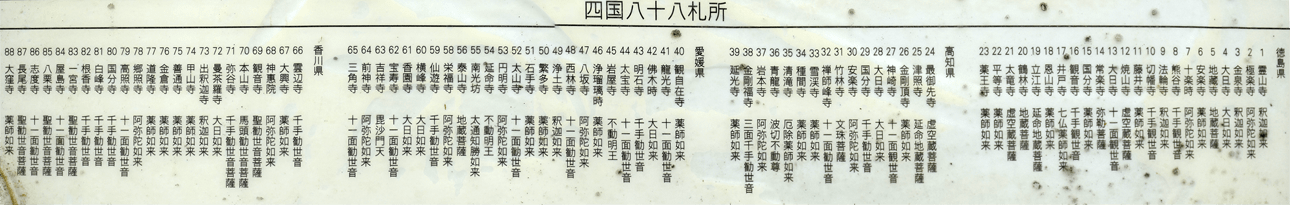 四国八十八札所
徳島県
1 霊山寺 釈迦如来
2 極楽寺 阿弥陀如来
3 金泉寺 釈迦如来
4 大日寺 大日如来
5 地蔵寺 地蔵菩薩
6 安楽寺 薬師如来
7 十楽寺 阿弥陀如来
8 熊谷寺 千手観世音
9 法輪寺 釈迦如来
10 切幡寺 千手観世音
11 藤井寺 薬師如来
12 焼山寺 虚空蔵菩薩
13 大日寺 十一面観世音
14 常楽寺 弥勒菩薩
15 国分寺 薬師如来
16 観音寺 千手観世音
17 井戸寺 七仏薬師如来
18 恩山寺 薬師如来
19 立江寺 延命地蔵菩薩
20 鶴林寺 地蔵菩薩
21 太竜寺 虚空蔵菩薩
22 平等寺 薬師如来
23 薬王寺 薬師如来
高知県
24 最御先寺 虚空蔵菩薩
25 津照寺 延命地蔵菩薩
26 金剛頂寺 薬師如来
27 神峰寺 十一面観世音
28 大日寺 大日如来
29 国分寺 千手観世音
30 安楽寺 阿弥陀如来
31 竹林寺 文珠菩薩
32 禅師峰寺 十一面勧世音
33 雪渓寺 薬師如来
34 種間寺 薬師如来
35 清滝寺 厄除薬師如来
36 青龍寺 波切不動尊
37 岩本寺 阿弥陀如来
38 金剛福寺 三面千手勧世音
39 延光寺 薬師如来
愛媛県
40 観自在寺 薬師如来
41 龍光寺 十一面勧世音
42 佛木寺 大日如来
43 明石寺 千手勧世音
44 大宝寺 十一面勧世音
45 岩屋寺 不動明王
46 浄瑠璃寺 薬師如来
47 八坂寺 阿弥陀如来
48 西林寺 十一面勧世音
49 浄土寺 釈迦如来
50 繁多寺 薬師如来
51 石手寺 薬師如来
52 太山寺 十一面勧世音
53 円明寺 阿弥陀如来
54 延命寺 不動明王
55 南光坊 大通知勝如来
56 泰山寺 地蔵菩薩
58 栄福寺 阿弥陀如来
59 仙遊寺 千手勧世音
60 横峰寺 大日如来
61 香園寺 大日如来
62 宝寿寺 十一面勧世音
63 吉祥寺 毘沙門天
64 前神寺 阿弥陀如来
65 三角寺 十一面勧世音
香川県
66 雲辺寺 千手勧世音
67 大興寺 薬師如来
68 神惠院 阿弥陀如来
69 観音寺 聖勧世音菩薩
70 本山寺 馬頭勧世音菩薩
71 弥谷寺 千手勧世音菩薩
72 曼荼羅寺 大日如来
73 出釈迦寺 釈迦如来
74 甲山寺 薬師如来
75 善通寺 薬師如来
76 金倉寺 薬師如来
77 道隆寺 薬師如来
78 郷照寺 阿弥陀如来
79 高照院 十一面勧世音
80 国分寺 千手勧世音
81 白峰寺 千手勧世音
82 根香寺 千手勧世音
83 一宮寺 聖勧世音菩薩
84 屋島寺 十一面勧世音
85 八栗寺 聖勧世音菩薩
86 志度寺 十一面勧世音
87 長尾寺 聖勧世音菩薩
88 大窪寺 薬師如来